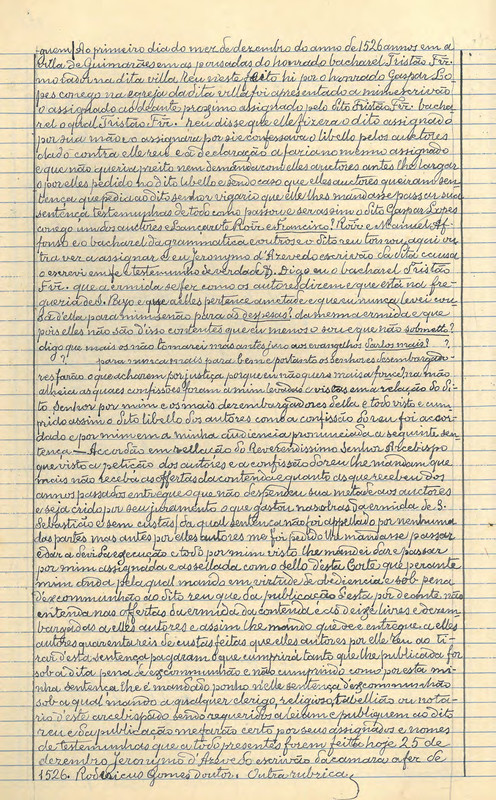 quem] Ao primeiro dia do mez de dezembro do anno de 1526 annos em a
villa de Guimarães em as pousadas do honrado bacharel Tristão Frz.
morador na dita villa reu neste feito hi por o honrado Gaspar Lo-
pes conego na egreja da dita villa foi apresentado a mim escrivão
o assignado ao deante proximo assignado pelo dito Tristão Frz. bacha-
rel o qual Tristão Frz. reu disse que elle fizera o dito assignado
por sua mão e o assignara por si e confessava o libello pelos auctores
dado contra elle reu e a declaração a faria no mesmo assignado
e que não queria preito nem demanda com elles auctores antes lhe largar
o por elles pedido no dito libello e sendo caso que elles auctores queiram sen-
tença que pedia ao dito senhor vigario que elle lhes mandasse passar sua
sentença testemunhas de todo como passou e ser assim o dito Gaspar Lopes
conego um dos auctores e Lançarote Roiz e Francisco? Roiz e Manuel Af-
fonso e o bacharel da grammatica e outros e o dito reu tornou aqui ou
tra vez a assignar e eu Jeronymo d'Azevedo escrivão da dita causa
o escrevi em fé e testemunho de verdade Digo eu o bacharel Tristão
Frz. que a ermida se fez como os autores dizem e que está na fre-
guezia de S. Payo e que a elles pertence ametade e que eu nunca levei cou-
sa d'ella para mim senão para as despesas? da mesma ermida e que
pois elles não são d'isso contentes que eu menos o sou e que não sobmetto?
digo que mais os não tomarei mas antes juro aos evangelhos Sarlos mais? ?
? para nunca mais para bem e portanto os Senhores desembargado-
res farão o que acharem por justiça porque eu não quero mais a força? na mão
alheia as quaes confissões foram a mim levadas e vistas em a relação do di-
to Senhor por mim e os mais dezembargadores della e todo visto e cum-
prido assim o dito libello dos autores com a confissão do reu foi accor-
dado e por mim em a minha audiencia pronunciada a seguinte sen-
tença — Accordão em rellação do Reverendissimo Senhor Arcebispo
que visto a petição dos autores e a confissão do reu lhe mandam que
mais não receba as offertas da contenda e quanto as que recebeu dos
annos passados entregue o que não despendeu sua metade aos auctores
e seja crido por seu juramento o que gastou nas obras da ermida de S.
Sebastião e sem custas da qual sentença não foi appellado por nenhuma
das partes mas antes por elles autores me foi pedido lh'a mandasse passar
e dar a devida execução e todo por mim visto lhe mandei dar e passar
por mim assignada e assellada com o sello desta Corte que perante
mim anda pela qual mando em virtude de obediencia e sob pena
d'excommunhão ao dito reu que da publicação d'esta por deante não
entenda nas offertas da ermida da contenda e as deixe livres e desem-
bargadas a elles autores e assim lhe mando que de e entregue a elles
autores quarenta reis de custas feitas que elles autores por elle reu ao ti-
rar d'esta sentença pagaram o que cumprirá tanto que lhe publicada for
sob a dita pena de excommunhão e não cumprindo como por esta mi-
nha sentença lhe é mandado ponho n'elle sentença d'excommunhão
sob a qual mando a qualquer clerigo, religioso, tabellião ou nota-
rio d'este arcebispado sendo requeridos a leiam e publiquem ao dito
reu e da publicação me farão certo por seus assignados e nomes
de testemunhas que a todo presentes forem feita hoje 25 de
dezembro Jeronymo d'Azevedo escrivão da camara a fez de
1526. Rodericus Gomes doutor. Outra rubrica.